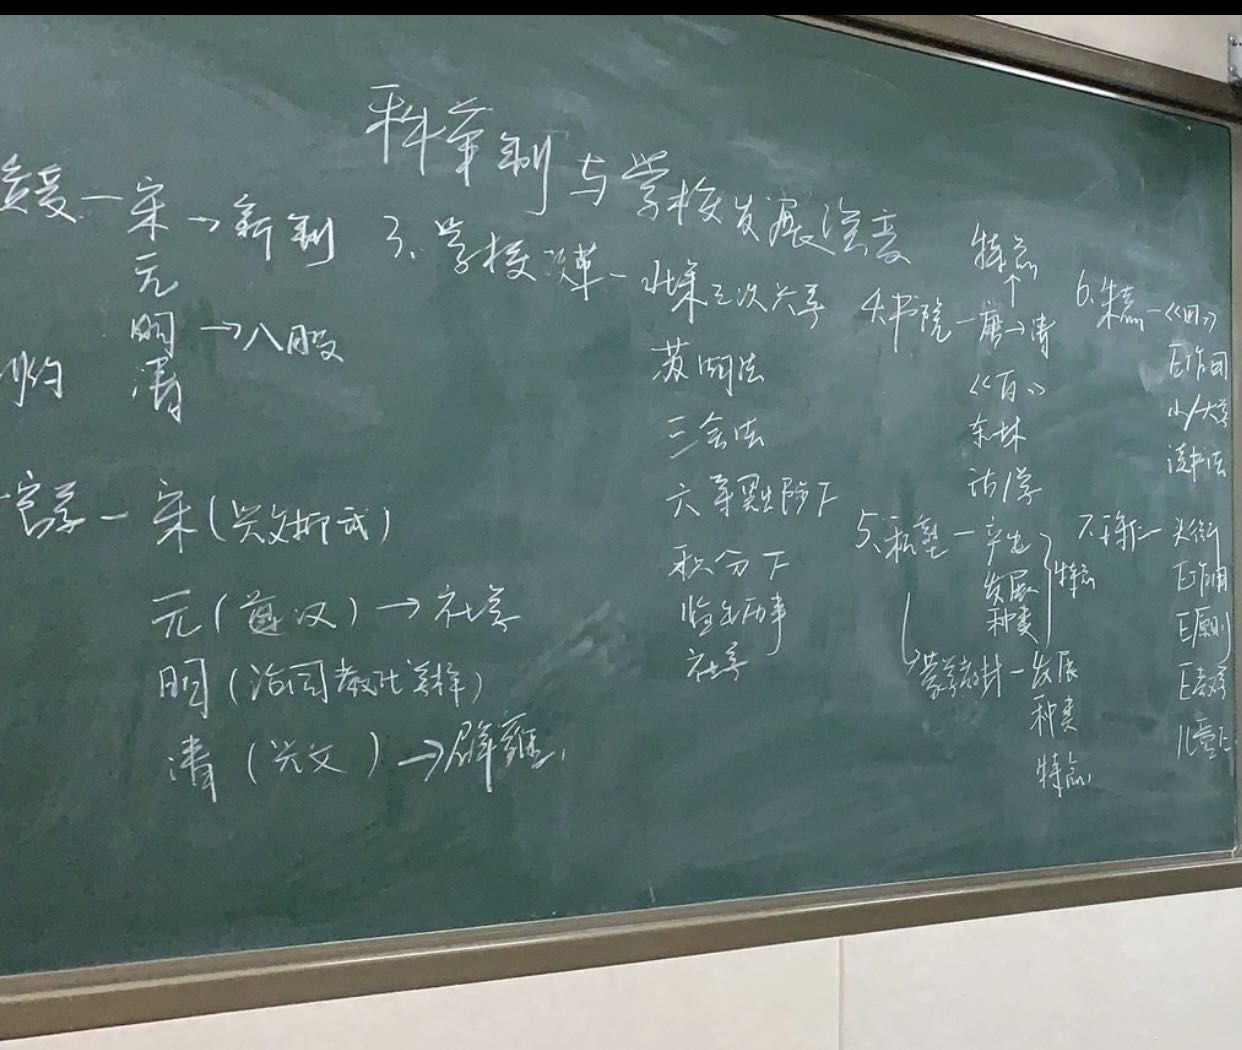 科举制与学校发展演变
宋→新制
元
明→八股
清
官学一宋(兴文抑武)
元(遵汉)→社学
明(治国教化 择)
清(兴文)→辟雍
3.学校改革一北宋三次兴学
苏湖法
三舍法
六等黜陟下
积分下
监生历事
社学
特点
↑
4.书院一唐→清
《百》
东林
诂/学
5.私塾一产生
发展
种类
特点
蒙学教材一发展
种类
特点
6.朱熹一《四》
E作用
小/大学
读书法
7.
E作用
E原则
E教学
儿童